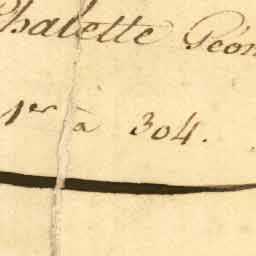 halette Géom
1er à 304.